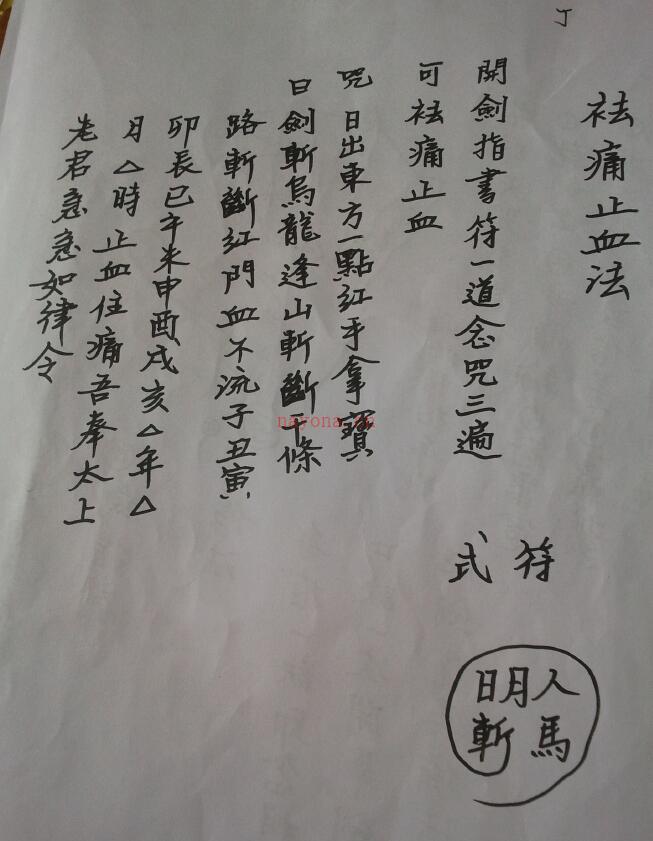 祛痛止血法
開劍指書符一道念咒三遍
可祛痛止血
咒日出東方一點紅手拿寶
曰劍斬烏龍逢山斬斷千條
路斬斷紅門血不流子丑寅
卯辰巳午未申酉戌亥△年△
月△時止血住痛吾奉太上
老君急急如律令
符式
日月人
斬馬
nayona.cn